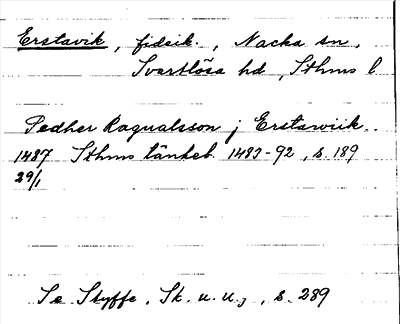 Erstavik, fideik., Nacka sn,
Svartlösa hd, Sthms l
Pedher Ragualsson j Erstawiik
1487 Sthms tänkeb. 1483-92, s. 189
29/1
Se Styffe, Sk. u. u., s. 289